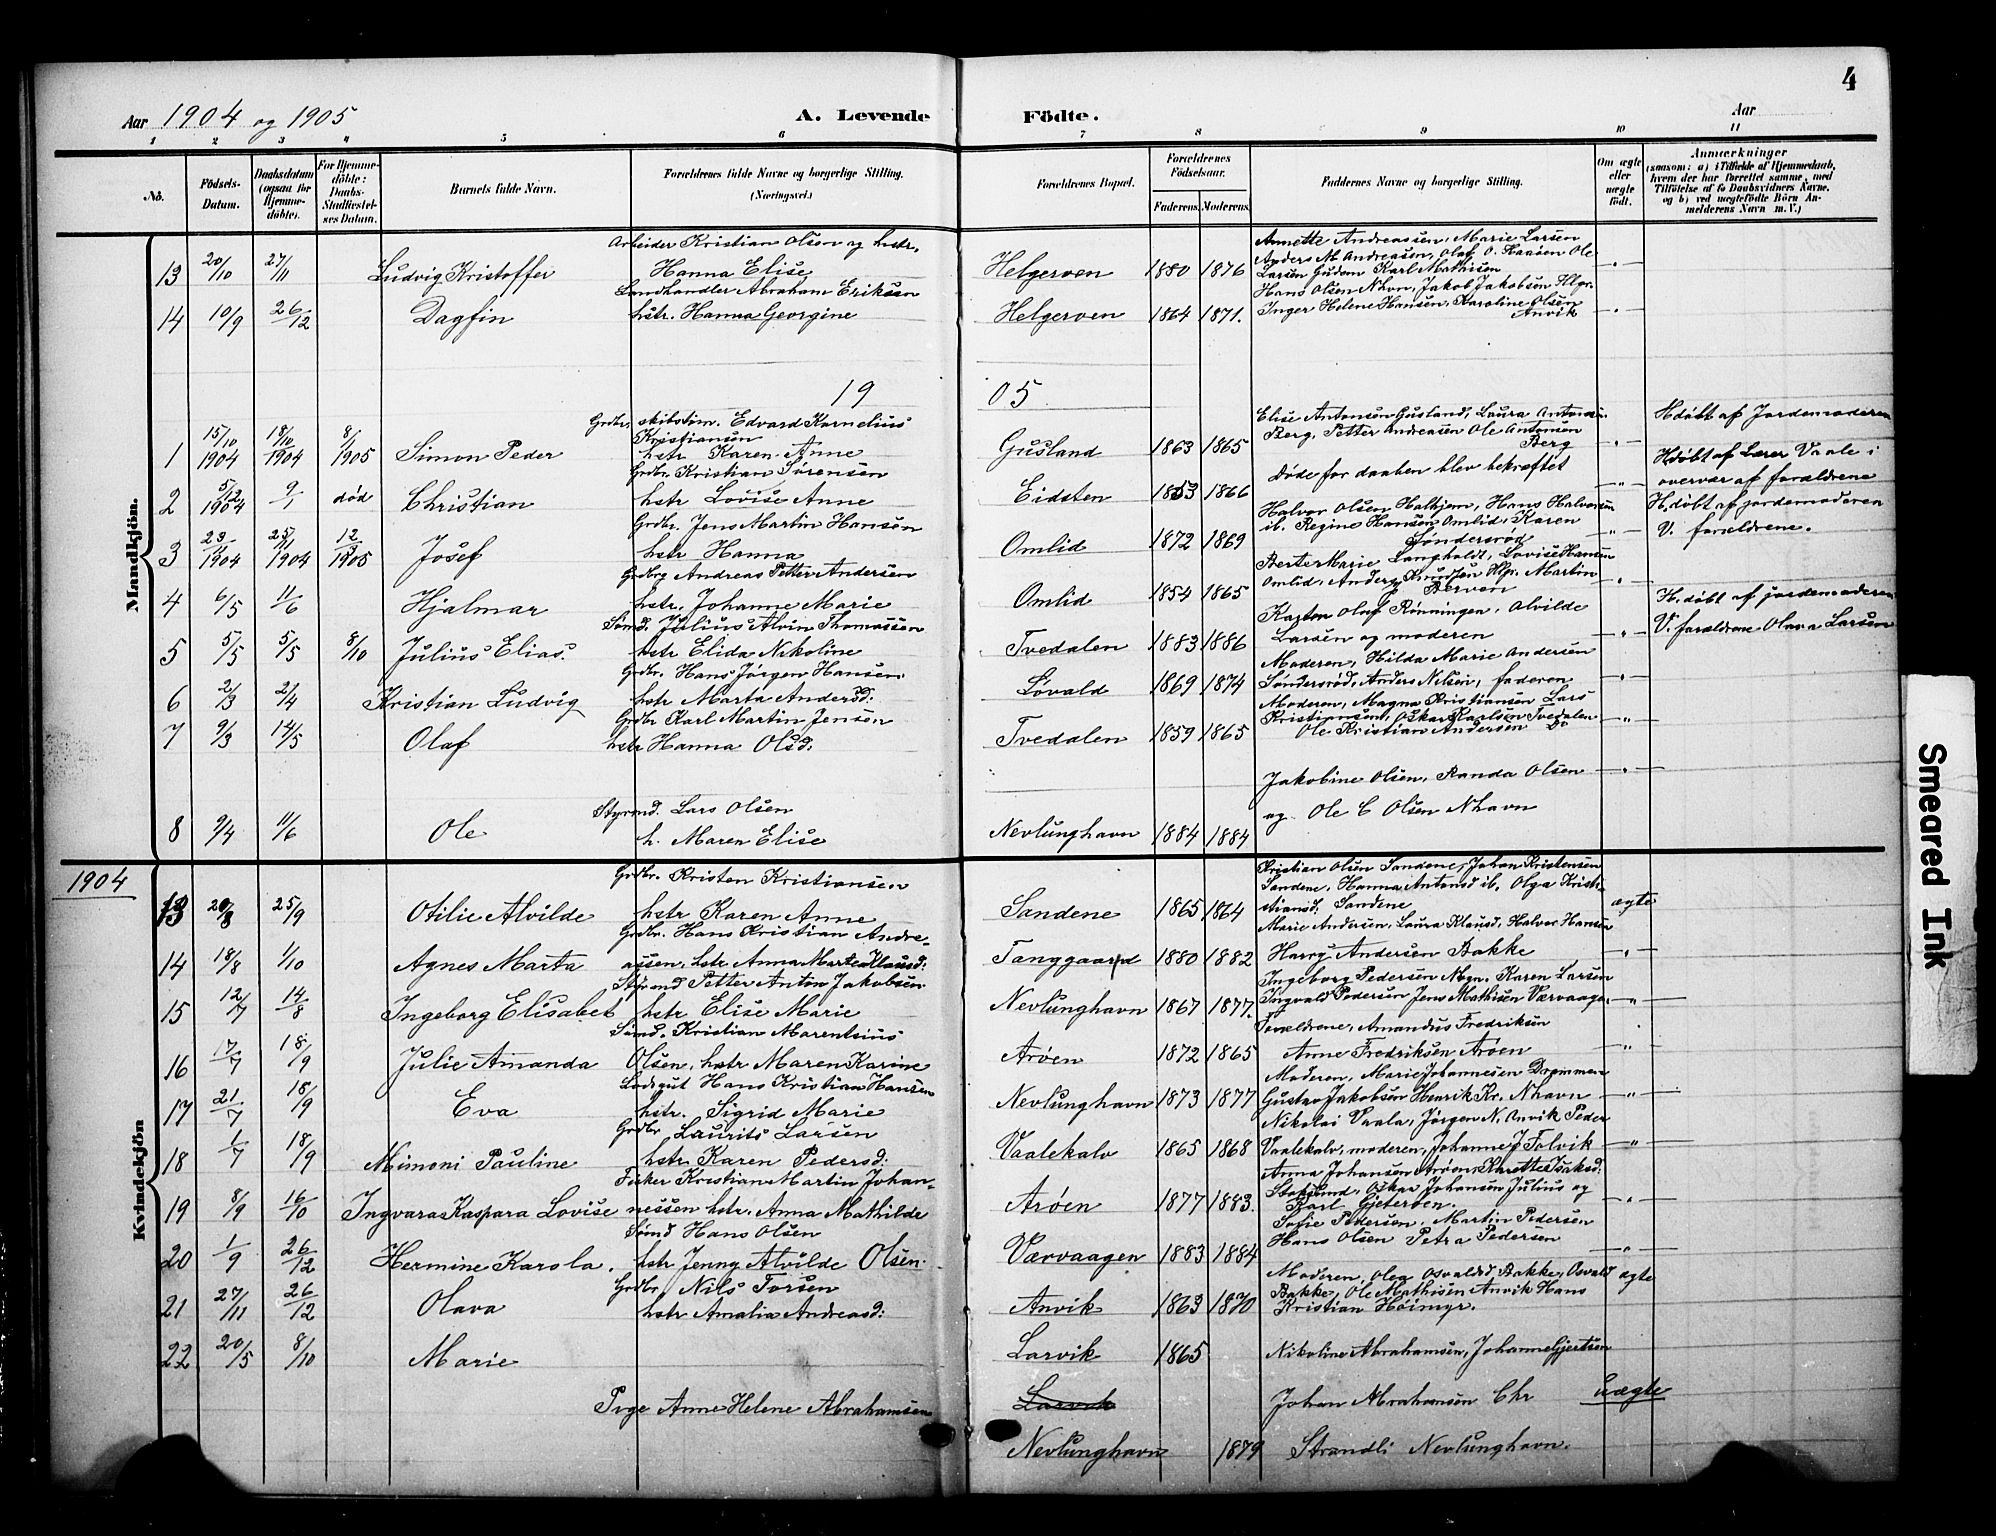 4
Aar 1904 og 1905 A. Levende Födte. Aar
1 2 3 „ 5 6 7 8 9 10 11
No. Födsels-Datum. Daabsdatum (ogsaa for Hjemme-döbte). For Hjemme-döbte: Daabs-Stadfæstel-ses Datum. Barnets fulde Navn. Forældrenes fulde Navne og borgerlige Stilling. (Næringsvei.) Forældrenes Bopæl. Forældrenes Födselsaar. Faderens. Moderens. Faddernes Navne og borgerlige Stilling. Om ægte eller uægte födt. Anmærkninger (saasom: a) i Tilfælde af Hjemmedaab, hvem der har forrettet samme, med Tilföielse af to Daabsvidners Navne, og b) ved uægtefödte Börn An-melderens Navn m. V.)
Mandkjön.
Arbeider Kristian Olsen og hstr.
13 20/10 27/11 Ludvig Kristoffer Hanna Elise Helgeroen 1880 1876
Annette Andreassen, Marie Larsen
Anders M Andreasen, Olaf O. Haasen Ole
Larsen Gudem Karl Mathisen
Landhandler Abraham Eriksen
14 10/9 26/12 Dagfin hstr. Hanna Georgine Helgeroen 1864 1871.
Hans Olsen Nhavn, Jakob Jakobsen Hlgr.
Inger Helene Hansen, Karoline Olsen
Anvik
19 05
Grdbr. skibstøm. Edvard Kornelius
Kristiansen
1 15/10 1904 18/10 1904 8/1 1905 Simon Peder hstr Karen Anne Gusland 1863 1865
Elise Antonsen Gusland, Laura Antonsen
Berg, Petter Andreasen Ole Antonsen
Berg
Hdöbt af Jordemoderen
Grdbr. Kristian Sørensen
2 5/12 1904 9/1 død Christian hstr Lovise Anne Eidsten 1853 1866
Døde før daaben blev bekræftet
Hdöbt af Lærer Vaale i
overvær af forældrene
Grdbr. Jens Martin Hansen
3 23/11 1904 25/11 1904 12/3 1905 Josef hstr Hanna Omlid 1872 1869
Halvor Olsen Hathjem, Hans Halvorsen
ib. Regine Hansen Omlid, Karen
Søndersrød
H. döbt af jordemoderen
V. forældrene.
Grdbrg Andreas Petter Andersen
4 6/5 11/6 Hjalmar hstr. Johanne Marie Omlid 1854 1865
Berte Marie Langholdt, Lovise Hansen
Omlid, Anders Knudsen Hlgr. Martin
Berven
Sømd. Julius Alvin Thomassen
5 5/5 5/5 8/10 Julius Elias. hstr Elida Nikoline Tvedalen 1883 1886
Karsten Olaf Rønningen, Alvilde
Larsen og moderen
H. döbt af jordemoderen
V. forældrene Olava Larsen
Grdbr. Hans Jørgen Hansen
6 2/3 2/4 Kristian Ludvig hstr Marta Andersd: Løvald 1869 1874
Moderen, Hilda Marie Andersen
Søndersrød, Anders Nilsen, faderen
Grdbr Karl Martin Jensen
7 9/3 14/5 Olaf hstr Hanna Olsd: Tvedalen 1859 1865
Moderen, Magna Kristiansen Lars
Kristiansen, Oskar Karlsen Tvedalen
Ole Kristian Andersen Do
Styrmd. Lars Olsen
8 9/4 11/6 Ole h. Maren Elise Nevlunghavn 1884 1884
Jakobine Olsen, Randa Olsen
og Ole C Olsen Nhavn
1904
Kvindekjön
Grdbr. Kristen Kristiansen
13 20/8 25/9 Otilie Alvilde hstr Karen Anne Sandene 1865 1864
Kristian Olsen Sandene, Johan Kristensen
Sandene, Hanna Antonsd ib, Olga Kristi-
stiansd. Sandene
ægte
Grdbr. Hans Kristian Andre-
14 18/8 1/10 Agnes Marta assen, hstr Anna Martea Klausd: Tanggaard 1880 1882
Marie Andersen, Laura Klausd, Halvor Hansen
Harry Andersen Bakke
Styrmd Petter Anton Jakobsen
15 12/7 14/8 Ingeborg Elisabet hstr Elise Marie Nevlunghavn 1867 1877.
Ingeborg Pedersen Nhgn. Karen Larsen
Ingvald Pedersen Jens Mathisen Værvaagen
Sømd. Kristian Marentsius
16 17/7 18/9 Julie Amanda Olsen, hstr Maren Karine Arøen 1872 1865
Forældrene, Amandus Fredriksen
Anne Fredriksen Arøen
Lodsgut Hans Kristian Hansen
17 21/7 18/9 Eva hstr. Sigrid Marie Nevlunghavn 1873 1877
Moderen, Marie Johannesen Drammen
Gustav Jakobsen Henrik Kr. Nhavn
Grdbr Laurits Larsen
18 1/7 18/9 Mimoni Pauline hstr. Karen Pedersd: Vaalekalv 1865 1868
Nikolai Vaala, Jørgen N. Anvik Peder
Vaalekalv, moderen, Johanne J Folvik
Fisker Kristian Martin Johan-
19 8/9 16/10 Ingvara Kaspara Lovise nessen hstr. Anna Mathilde Arøen 1877 1883.
Anna Johansen Arøen, Karette Isaksd:
Stokslund, Oskar Johansen Julius og
Karl Gjeterøen.
Sømd Hans Olsen
20 1/9 26/12 Hermine Karola. hstr Jenny Alvilde Olsen. Værvaagen 1883 1884
Sofie Pedersen, Martin Pedersen
Hans Olsen Petra Pedersen
Grdbr Nils Torsen
21 27/11 26/12 Olava hstr Amalia Andreasd: Anvik 1863 1870
Moderen, Olea Osvaldsd Bakke, Osvald
Bakke, Ole Mathisen Anvik Hans
Kristian Høimyr.
ægte
22 20/5 8/10 Marie Larvik 1865
Nikoline Abrahamsen, Johanne Gjertsen
Pige Anne Helene Abrahamsen Larvik
Johan Abrahamsen Chr
uægte
Nevlunghavn 1879 Strandli Nevlunghavn.
Smeared Ink